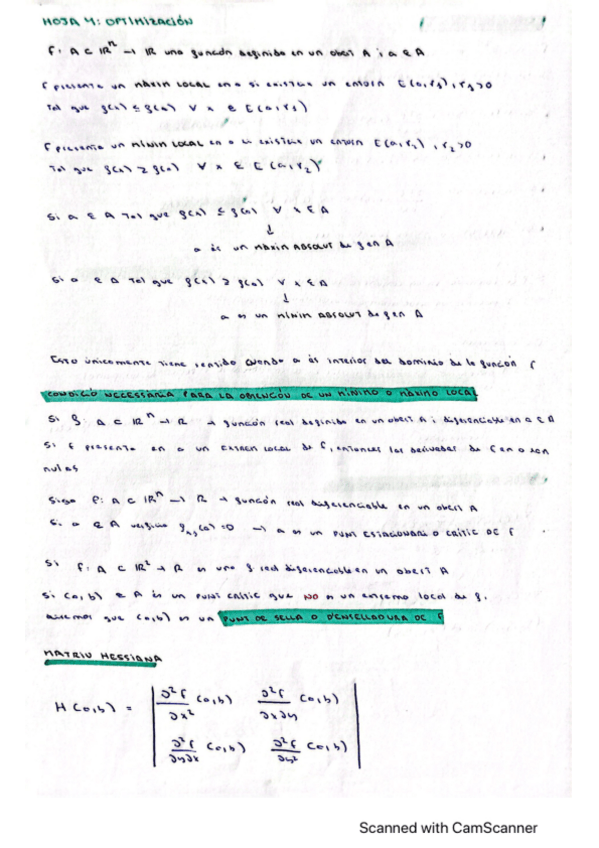 HOJA 4: OPTIMIZACIÓN
f: A ⊂ ℝⁿ → ℝ una función definida en un obert A i a ∈ A
f presenta un MÀXIM LOCAL en a si existeix un entorn E(a,r₁), r₁>0
Tal que f(x) ≤ f(a) ∀ x ∈ E(a,r₁)
f presenta un MÍNIM LOCAL en a si existeix un entorn E(a,r₂), r₂>0
Tal que f(x) ≥ f(a) ∀ x ∈ E(a,r₂)
Si a ∈ A Tal que f(x) ≤ f(a) ∀ x ∈ A
↓
a és un MÀXIM ABSOLUT de f en A
Si a ∈ A Tal que f(x) ≥ f(a) ∀ x ∈ A
↓
a es un MÍNIM ABSOLUT de f en A
Esto únicamente tiene sentido cuando a és interior del dominio de la función f
CONDICIÓ NECESSÀRIA PARA LA OBTENCIÓN DE UN MÍNIMO O MÁXIMO LOCAL
Si f: A ⊂ ℝⁿ → ℝ → función real definida en un obert A i diferenciable en a ∈ A
Si f presenta en a un EXTREM LOCAL de f, entonces las derivadas de f en a son
nulas
Sigui f: A ⊂ ℝⁿ → ℝ → función real diferenciable en un obert A
Si a ∈ A verifica (a) = 0 → a es un PUNT ESTACIONARI O CRÍTIC DE f
Si f: A ⊂ ℝ² → ℝ es una f. real diferenciable en un obert A
Si (a,b) ∈ A és un punt crític que NO es un extremo local de f.
que (a,b) es un PUNT DE SELLA O D'ENSELLADURA DE f
MATRIU HESSIANA
H(a,b) = | ∂²f/∂x² (a,b) ∂²f/∂x∂y (a,b) |
| ∂²f/∂y∂x (a,b) ∂²f/∂y² (a,b) |
Scanned with CamScanner